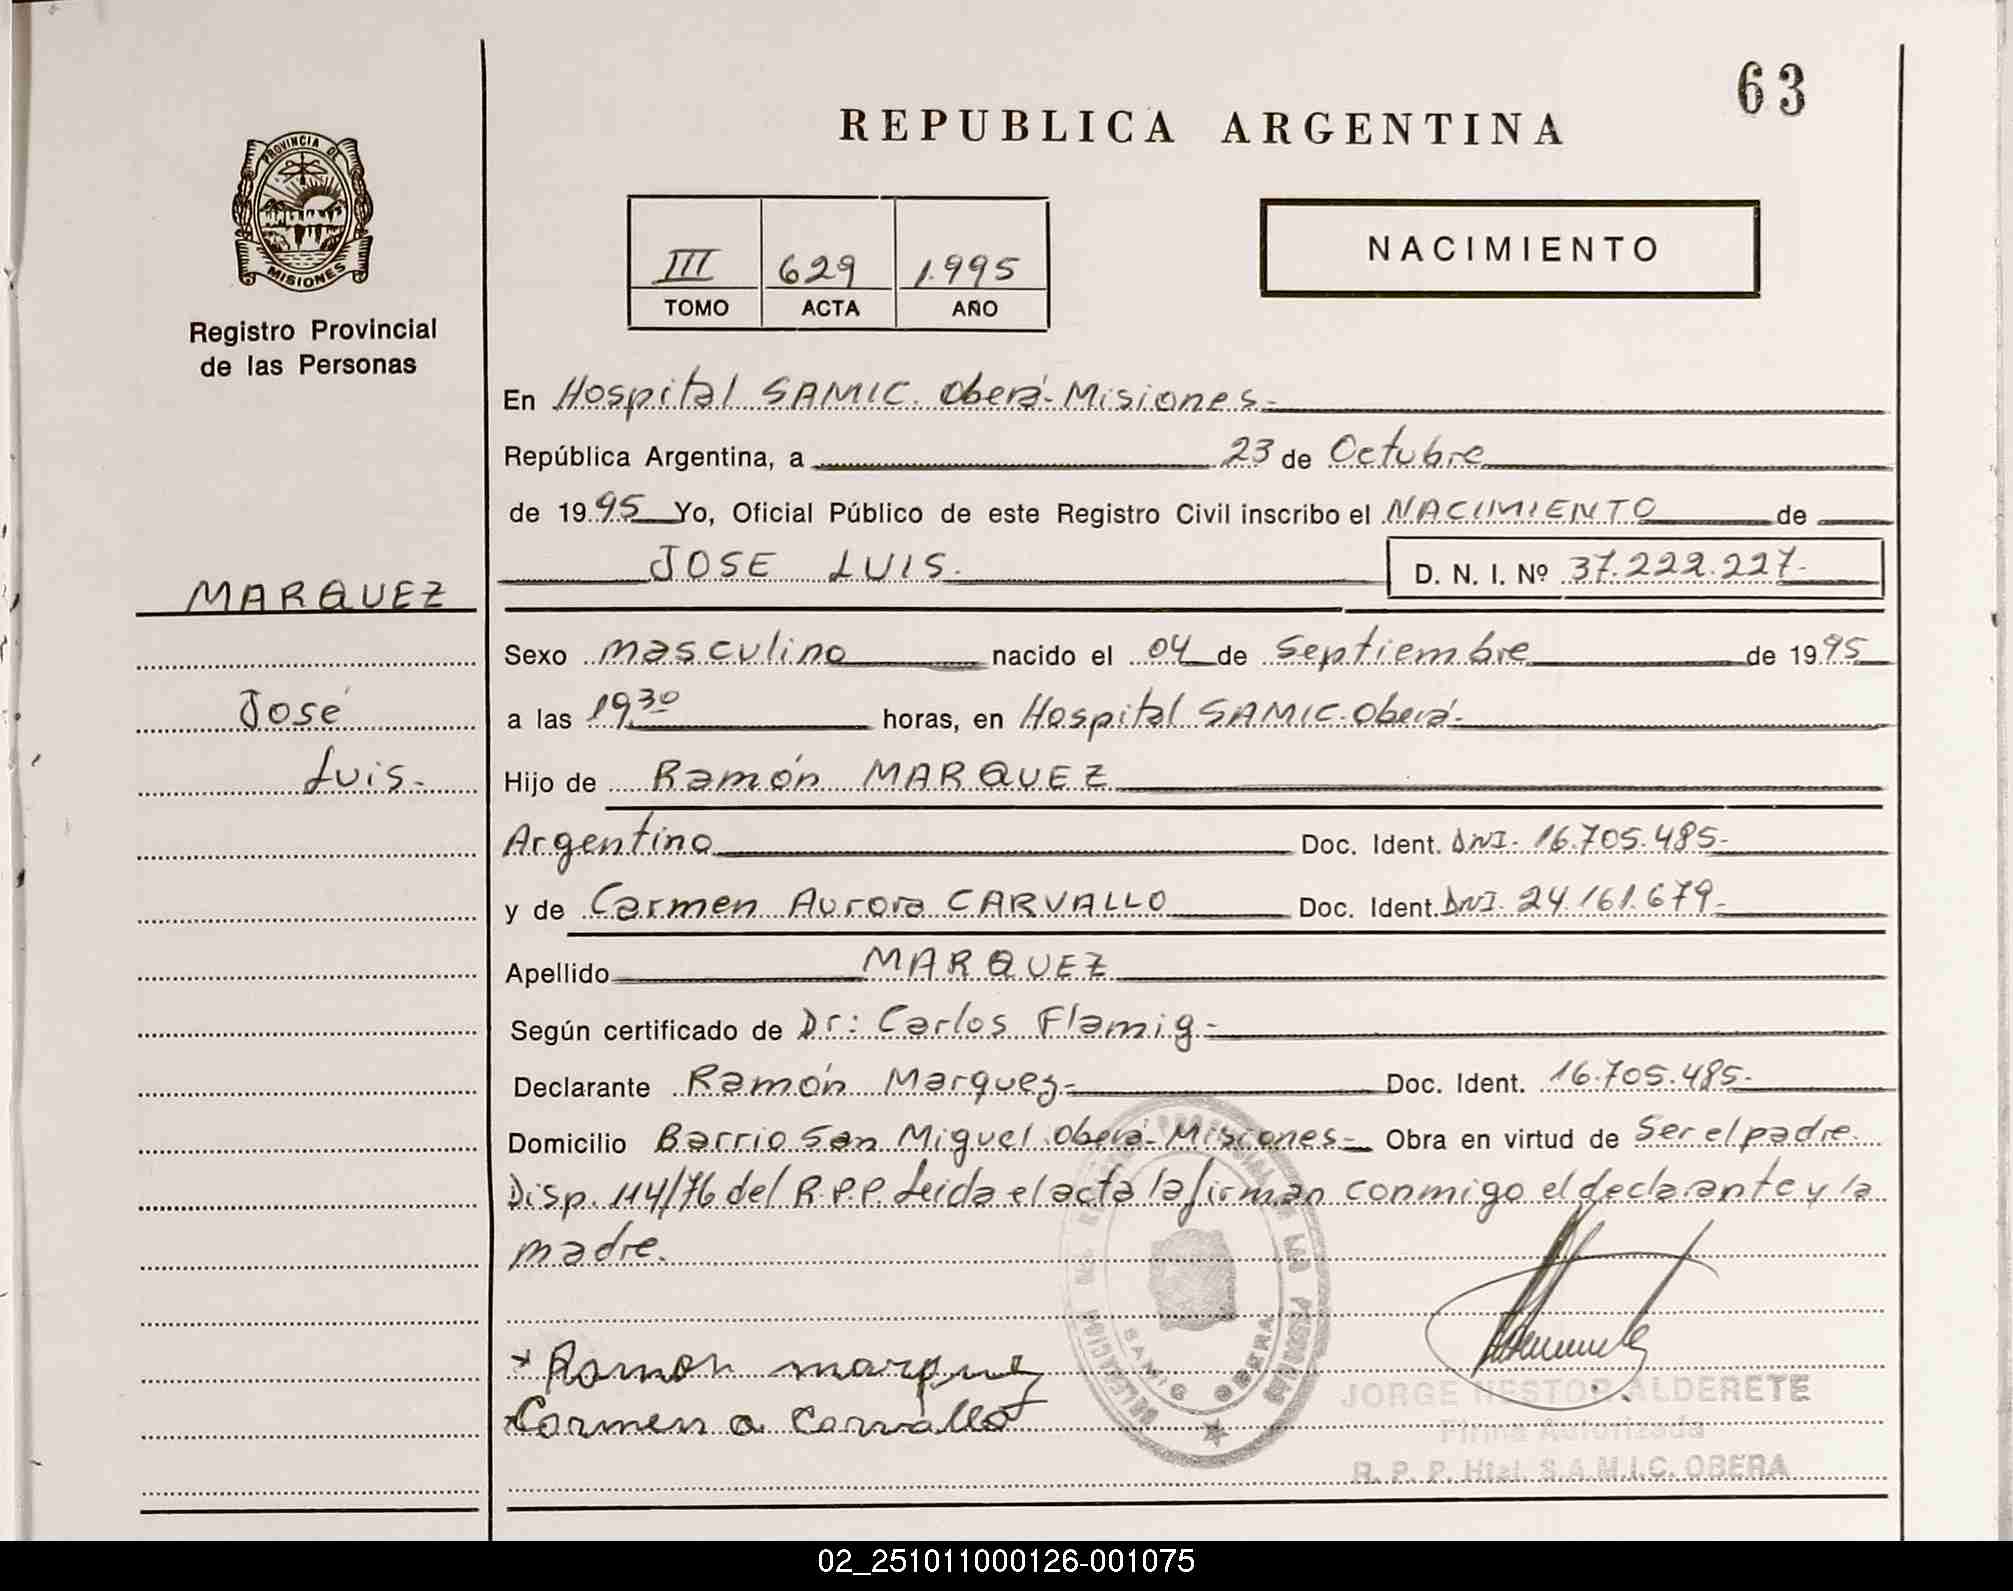 63
REPUBLICA ARGENTINA
PROVINCIA DE
MISIONES
Registro Provincial
de las Personas
III 629 1.995
TOMO ACTA AÑO
NACIMIENTO
En Hospital SAMIC. Oberá-Misiones.-
República Argentina, a 23 de Octubre
de 1995 Yo, Oficial Público de este Registro Civil inscribo el NACIMIENTO de
JOSE LUIS.
D. N. I. Nº 37.222.227-
MARQUEZ
José
Luis.-
Sexo masculino nacido el 04 de Septiembre de 1995
a las 19,30 horas, en Hospital SAMIC-Oberá-
Hijo de Ramón MARQUEZ
Argentino Doc. Ident. DNI- 16.705.485-
y de Carmen Aurora CARVALLO Doc. Ident. DNI- 24.161.679-
Apellido MARQUEZ
Según certificado de Dr: Carlos Flamig-
Declarante Ramón Marquez- Doc. Ident. 16.705.485-
Domicilio Barrio San Miguel Oberá-Misiones- Obra en virtud de Ser el padre.
Disp. 114/76 del R.P.P. Leida el acta la firman conmigo el declarante y la
madre.
Ramon marquez
Carmen a Carvallo
SAMIC OBERA
JORGE NESTOR ALDERETE
Firma Autorizada
R. P. P. Htal. S.A.M.I.C. OBERA
02_251011000126-001075